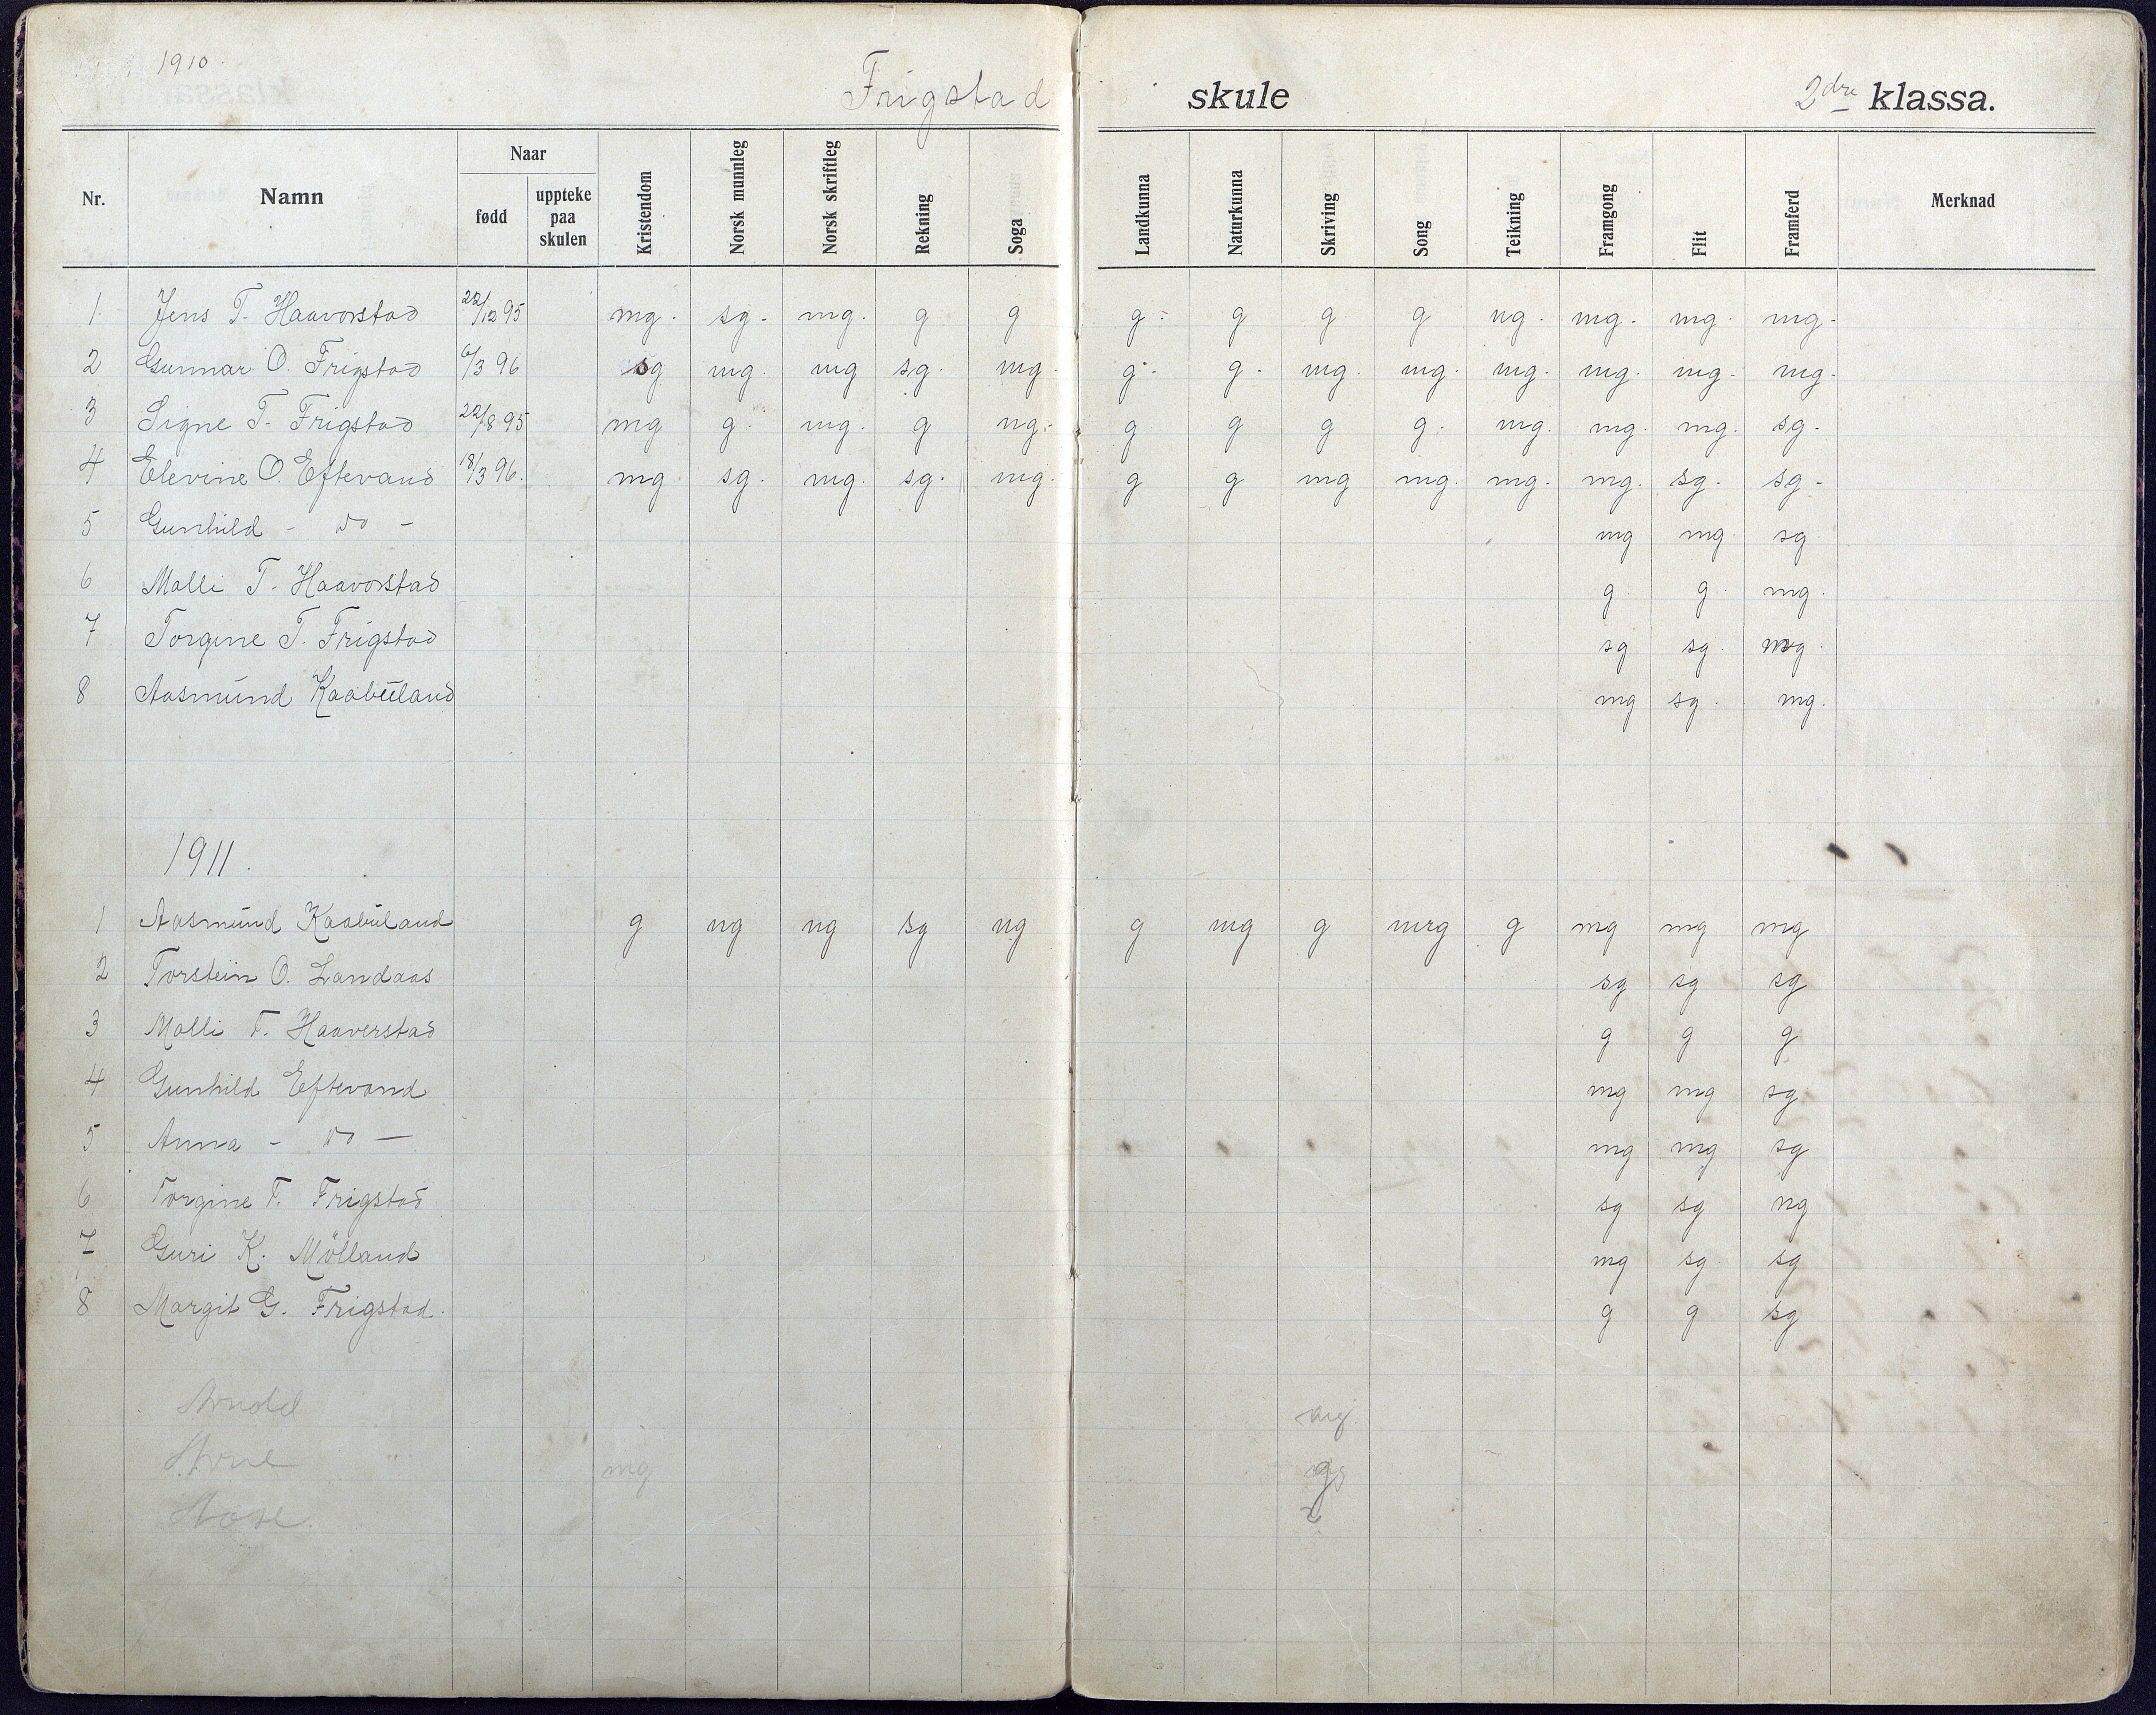 1910.
Frigstad skule 2dre klassa.
Nr. Namn Naar fødd uppteke paa skulen Kristendom Norsk munnleg Norsk skriftleg Rekning Soga Landkunna Naturkunna Skriving Song Teikning Framgong Flit Framferd Merknad
1 Jens T. Haavorstad 22/12 95 mg. sg. mg. g g g g g g ng. mg. mg. mg.
2 Gunnar O. Frigstad 6/3 96 sg mg. mg sg. mg. g. g. mg. mg. mg. mg. mg. mg.
3 Signe T. Frigstad 22/8 95 mg g mg. g ng. g g g g. mg. mg. mg. sg.
4 Elevine O. Eftevand 18/3 96. mg sg. mg. sg. mg. g g mg mg. mg. mg. sg. sg.
5 Gunhild - do - mg mg. sg
6 Malli T. Haavorstad g g mg.
7 Torgine T. Frigstad sg sg. mg.
8 Aasmund Kaabuland mg sg. mg.
1911.
1 Aasmund Kaabuland g ng ng sg ng g mg g mg g mg mg mg
2 Torstein O. Landaas sg sg sg
3 Malli T. Haaverstad g g g
4 Gunhild Eftevand mg mg sg
5 Anna - do - mg mg sg
6 Torgine T. Frigstad sg sg ng
7 Guri K. Mölland mg sg sg
8 Margit G. Frigstad. g g sg
Arne mg
Aase